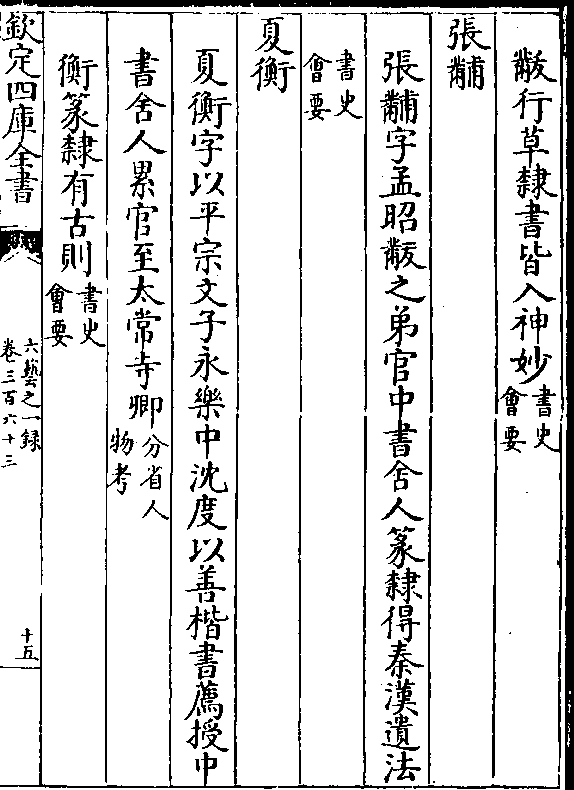 黻行草隷書皆入神妙書史會要
張黼
張黼字孟昭黻之弟官中書舍人篆隷得秦漢遺法
書史會要
夏衡
夏衡字以平宗文子永樂中沈度以善楷書薦授中
書舍人累官至太常寺卿分省人物考
衡篆隷有古則書史會要
欽定四庫全書
六藝之一録
卷三百六十三
十五